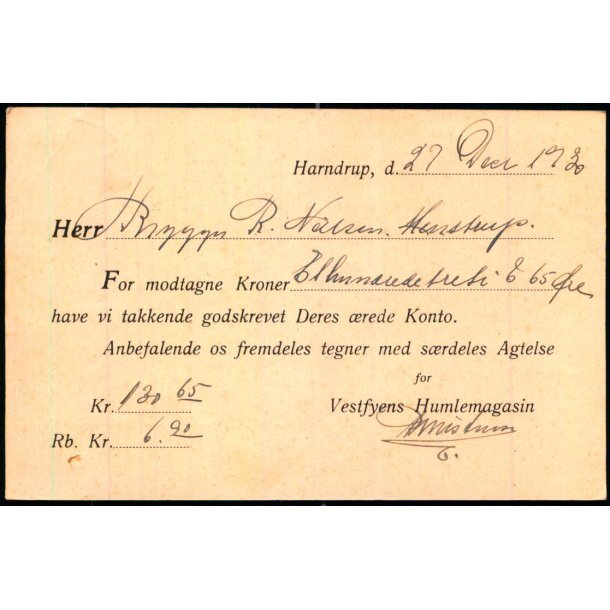 Harndrup, d. 27 Decr 1930
Herr Brygger R. Nielsen.
For modtagne Kroner Ethundredetreti & 65 Øre
have vi takkende godskrevet Deres ærede Konto.
Anbefalende os fremdeles tegner med særdeles Agtelse
for
Kr. 130 65 Vestfyens Humlemagasin
Rb. Kr. 6.90